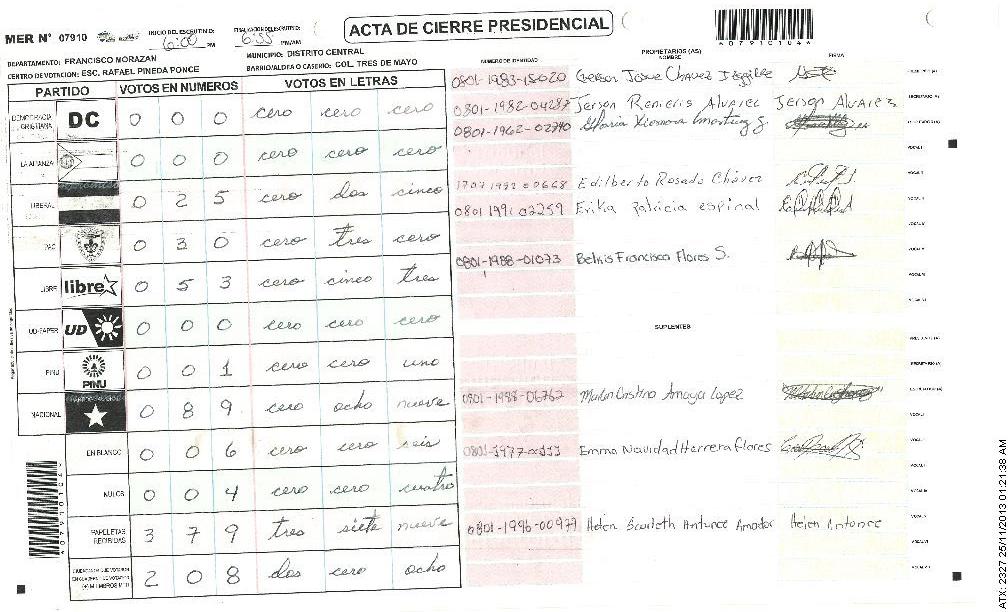 ACTA DE CIERRE PRESIDENCIAL
MER N° 07910
INICIO DEL ESCRUTINIO: 6:00 PM
FINALIZACION DEL ESCRUTINIO: 6:55 PM/AM
DEPARTAMENTO: FRANCISCO MORAZAN
MUNICIPIO: DISTRITO CENTRAL
CENTRO DE VOTACION: ESC. RAFAEL PINEDA PONCE
BARRIO/ALDEA O CASERIO: COL. TRES DE MAYO
PARTIDO VOTOS EN NUMEROS VOTOS EN LETRAS
DEMOCRACIA CRISTIANA DC 0 0 0 cero cero cero
LA ALIANZA 0 0 0 cero cero cero
LIBERAL 0 2 5 cero dos cinco
PAC 0 3 0 cero tres cero
LIBRE libre 0 5 3 cero cinco tres
UD-FAPER UD 0 0 0 cero cero cero
PINU PINU 0 0 1 cero cero uno
NACIONAL 0 8 9 cero ocho nueve
EN BLANCO 0 0 6 cero cero seis
NULOS 0 0 4 cero cero cuatro
PAPELETAS RECIBIDAS 3 7 9 tres siete nueve
2 0 8 dos cero ocho
NUMERO DE IDENTIDAD PROPIETARIOS (AS) NOMBRE FIRMA
0801-1983-15020 Gerson Josue Chavez
0801-1982-04287 Jerson Renieris Alvarez Jerson Alvarez
0801-1962-02740 Gloria Xiomara Martinez S.
1707 1982 00668 Edilberto Rosado Chávez
0801 1991 02259 Erika Patricia espinal
0801-1988-01073 Belkis Francisca Flores S.
SUPLENTES
0801-1988-06762 Marlen Cristina Amaya Lopez
0801-1977- Emma Navidad Herrera Flores
0801-1996-00977 Helen Scarleth Antunez Amador Helen Antunez
4079101044
ATX: 2327 25/11/2013 01:21:38 AM